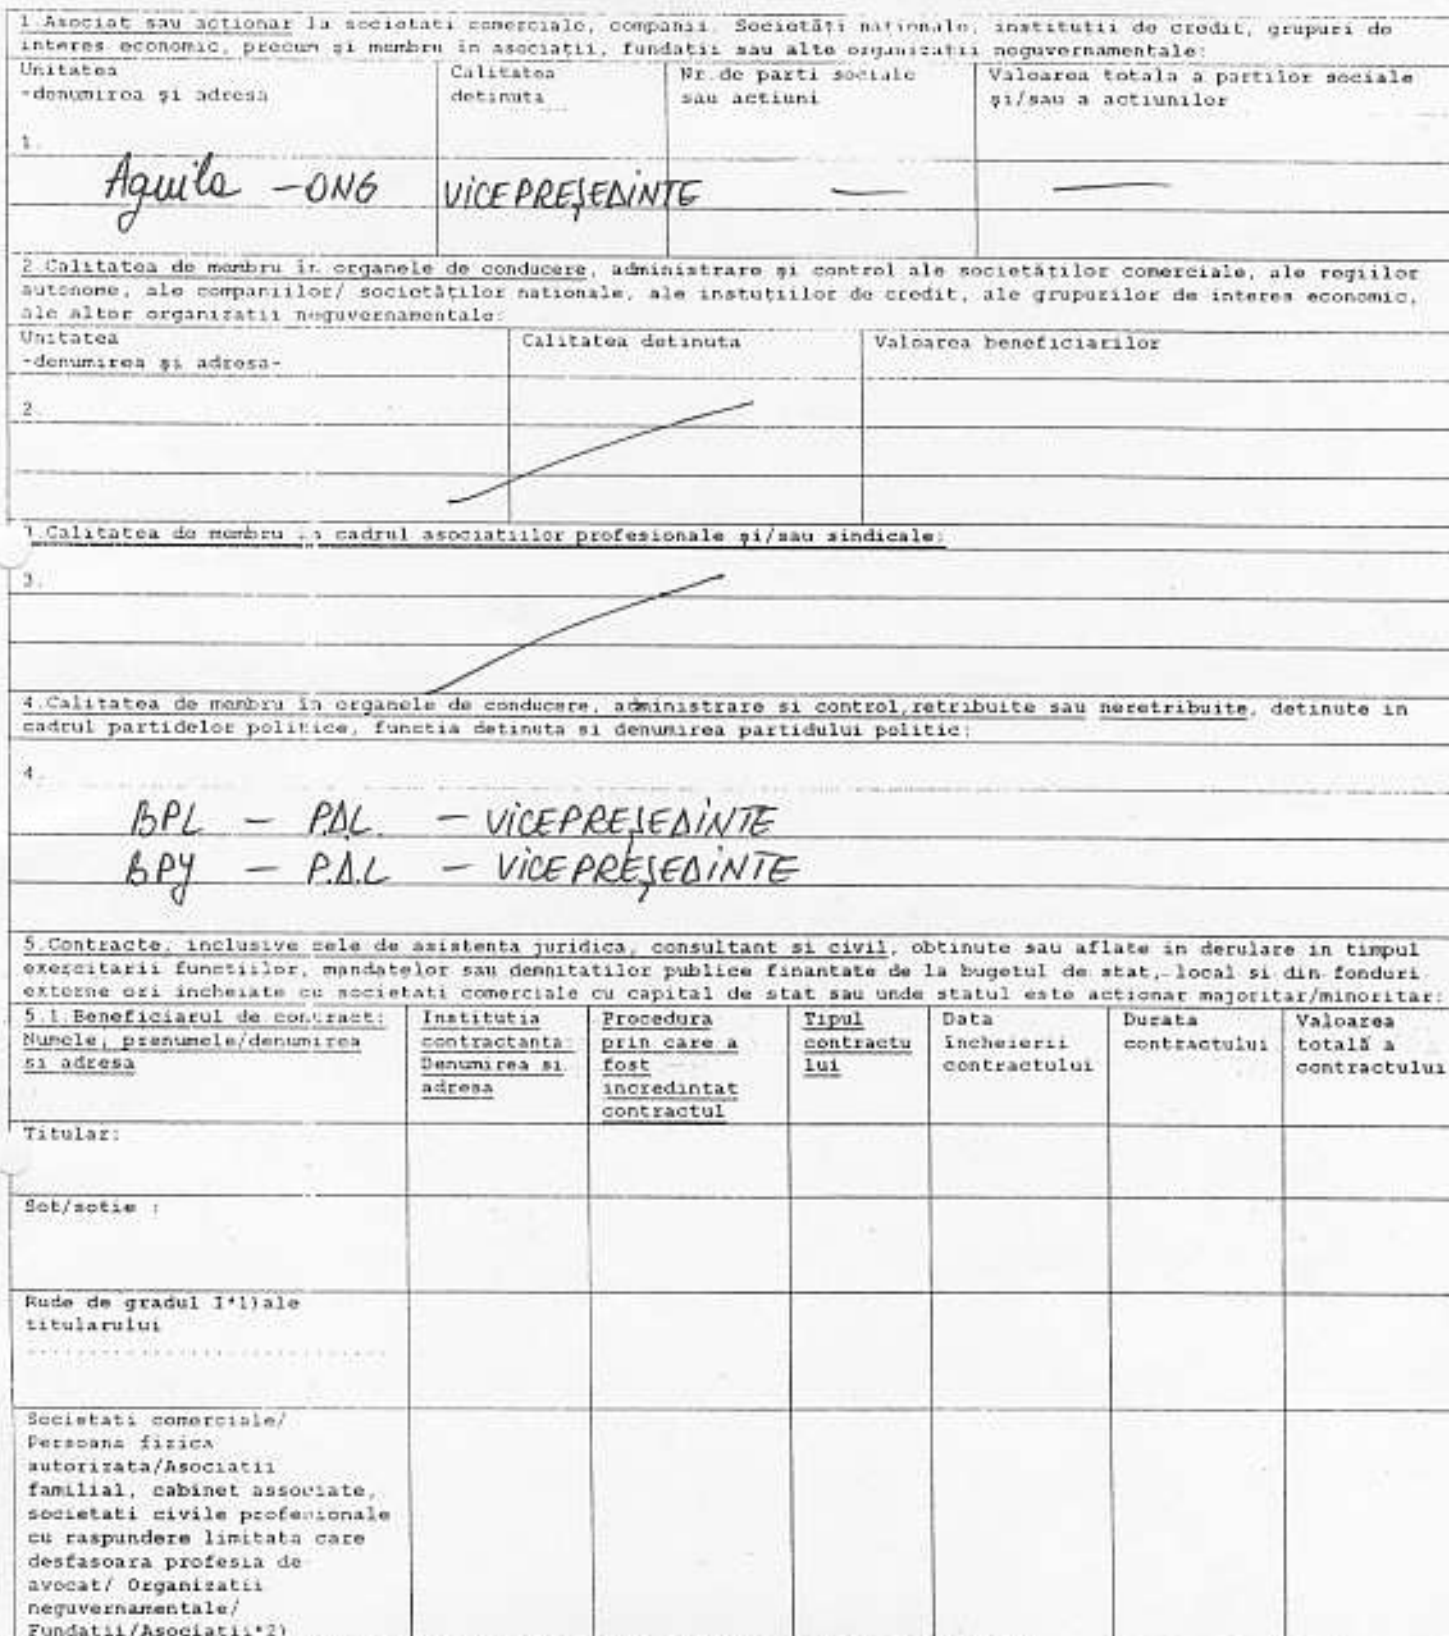 1.Asociat sau actionar la societati comerciale, companii. Societăți naționale, institutii de credit, grupuri de
interes economic, precum și membru în asociații, fundații sau alte organizatii neguvernamentale:
Unitatea
-denumirea și adresa
Calitatea
detinuta
Nr.de parti sociale
sau actiuni
Valoarea totala a partilor sociale
și/sau a actiunilor
1.
Aquila - ONG VICEPREȘEDINTE — —
2.Calitatea de membru în organele de conducere, administrare și control ale societăților comerciale, ale regiilor
autonome, ale companiilor/ societăților nationale, ale instuțiilor de credit, ale grupurilor de interes economic,
ale altor organizatii neguvernamentale:
Unitatea
-denumirea și adresa-
Calitatea detinuta
Valoarea beneficiarilor
2.
Calitatea de membru in cadrul asociatiilor profesionale și/sau sindicale:
3.
4.Calitatea de membru în organele de conducere, administrare si control,retribuite sau neretribuite, detinute in
cadrul partidelor politice, functia detinuta si denumirea partidului politic:
4.
BPL - P.D.L. - VICEPREȘEDINTE
BPJ - P.D.L - VICEPREȘEDINTE
5.Contracte, inclusive cele de asistenta juridica, consultant si civil, obtinute sau aflate in derulare in timpul
exercitarii functiilor, mandatelor sau demnitatilor publice finantate de la bugetul de stat, local si din fonduri
externe ori incheiate cu societati comerciale cu capital de stat sau unde statul este actionar majoritar/minoritar:
5.1.Beneficiarul de contract:
Numele, prenumele/denumirea
si adresa
Institutia
contractanta:
Denumirea si
adresa
Procedura
prin care a
fost
incredintat
contractul
Tipul
contractu
lui
Data
încheierii
contractului
Durata
contractului
Valoarea
totală a
contractului
Titular:
Sot/sotie :
Rude de gradul I*1)ale
titularului
..............................
Societati comerciale/
Persoana fizica
autorizata/Asociatii
familial, cabinet associate,
societati civile profesionale
cu raspundere limitata care
desfasoara profesia de
avocat/ Organizatii
neguvernamentale/
Fundatii/Asociatii*2)